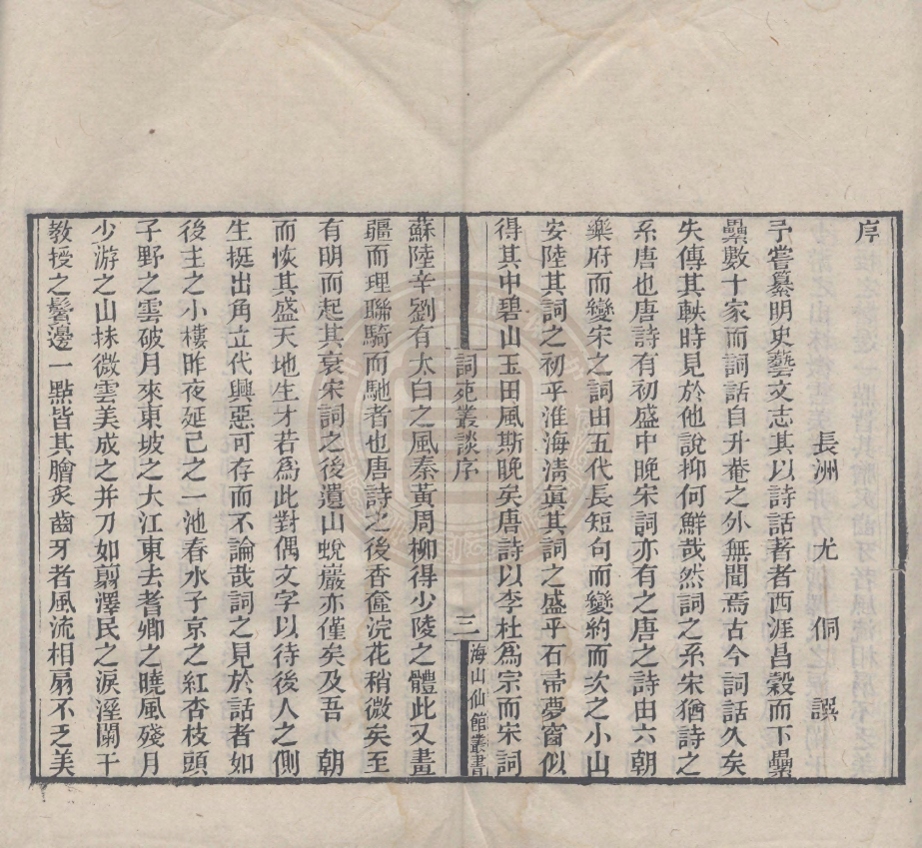 序
長洲 尤侗 譔
予嘗纂明史藝文志其以詩話著者西涯昌穀而下纍
纍數十家而詞話自升菴之外無聞焉古今詞話久矣
失傳其軼時見於他說抑何鮮哉然詞之系宋猶詩之
系唐也唐詩有初盛中晚宋詞亦有之唐之詩由六朝
樂府而變宋之詞由五代長短句而變約而次之小山
安陸其詞之初乎淮海清真其詞之盛乎石帚夢窗似
得其中碧山玉田風斯晚矣唐詩以李杜爲宗而宋詞
詞苑叢談序 三 海山仙館叢書
蘇陸辛劉有太白之風秦黃周柳得少陵之體此又畫
疆而理聯騎而馳者也唐詩之後香奩浣花稍微矣至
有明而起其衰宋詞之後遺山蛻巖亦僅矣及吾 朝
而恢其盛天地生才若爲此對偶文字以待後人之側
生挺出角立代興惡可存而不論哉詞之見於話者如
後主之小樓昨夜延己之一池春水子京之紅杏枝頭
子野之雲破月來東坡之大江東去耆卿之曉風殘月
少游之山抹微雲美成之并刀如翦澤民之淚溼闌干
教授之鬢邊一點皆其膾炙齒牙者風流相扇不乏美